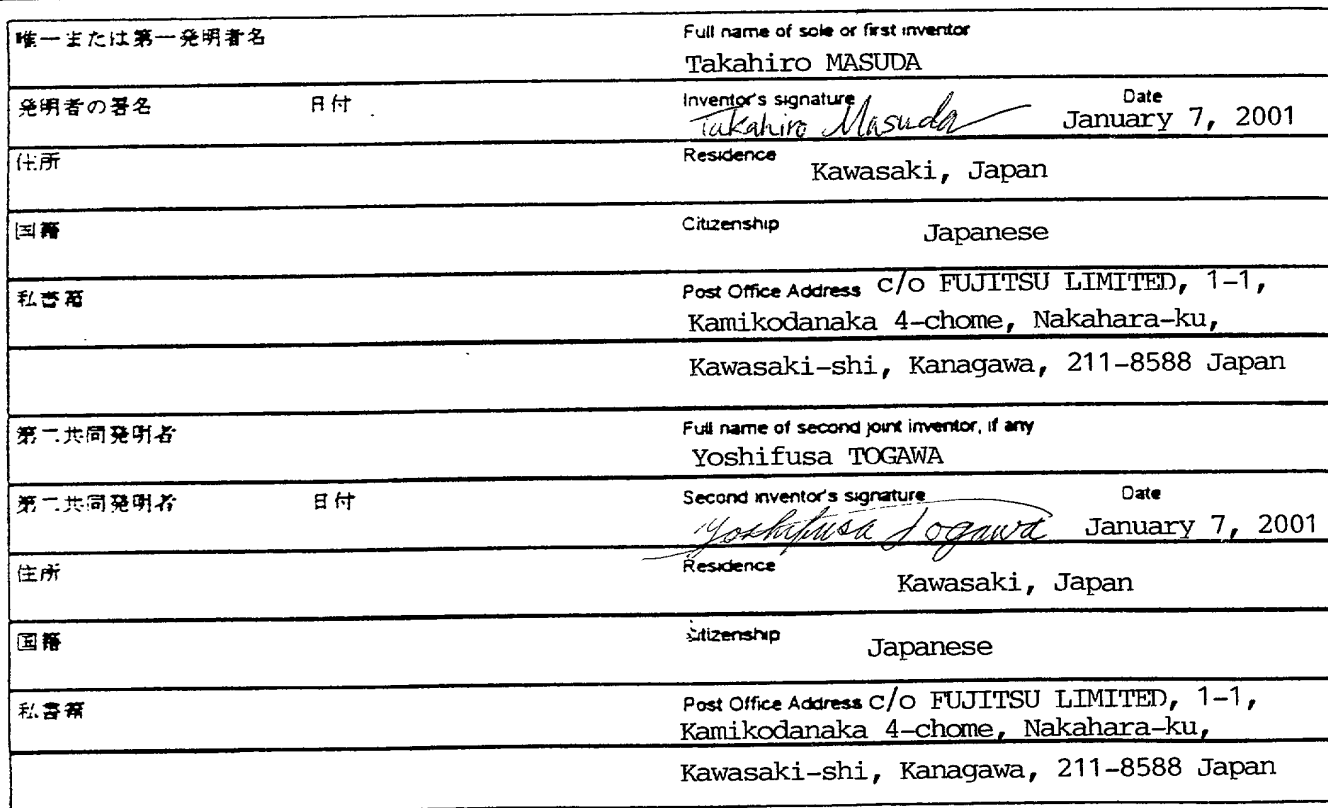 唯一または第一発明者名 Full name of sole or first inventor
Takahiro MASUDA
発明者の署名 日付 Inventor's signature Date
Takahiro Masuda January 7, 2001
住所 Residence
Kawasaki, Japan
国籍 Citizenship Japanese
私書箱 Post Office Address c/o FUJITSU LIMITED, 1-1,
Kamikodanaka 4-chome, Nakahara-ku,
Kawasaki-shi, Kanagawa, 211-8588 Japan
第二共同発明者 Full name of second joint inventor, if any
Yoshifusa TOGAWA
第二共同発明者 日付 Second inventor's signature Date
Yoshifusa Togawa January 7, 2001
住所 Residence
Kawasaki, Japan
国籍 Citizenship Japanese
私書箱 Post Office Address c/o FUJITSU LIMITED, 1-1,
Kamikodanaka 4-chome, Nakahara-ku,
Kawasaki-shi, Kanagawa, 211-8588 Japan